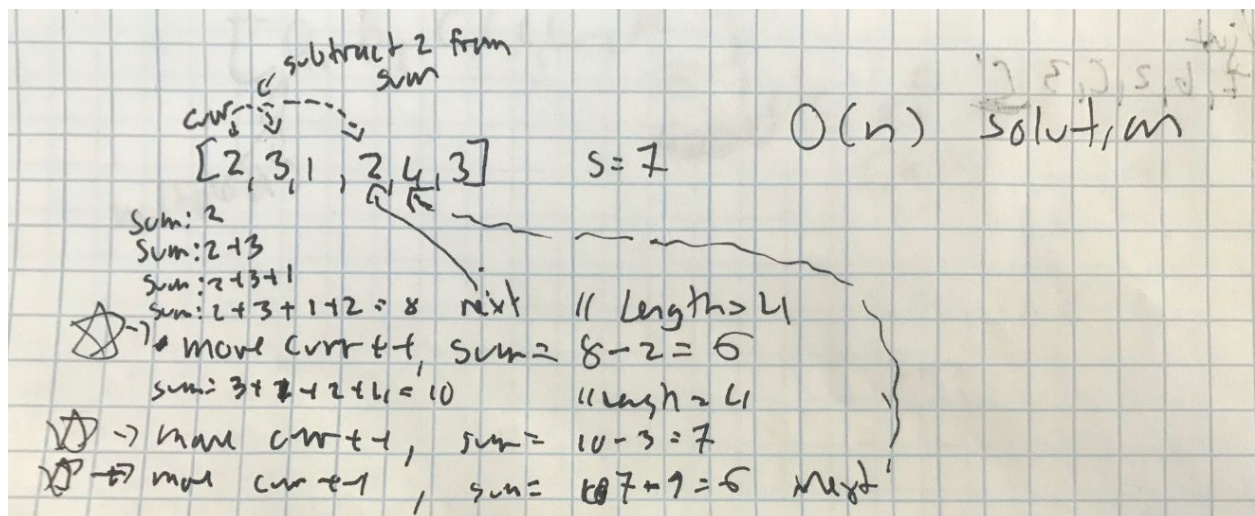 subtract 2 from
sum
curr
[2, 3, 1, 2, 4, 3] s = 7
O(n) solution
sum: 2
sum: 2+3
sum: 2+3+1
sum: 2+3+1+2 = 8 next // Length = 4
→ move curr++, sum = 8-2 = 6
sum: 3+1+2+4 = 10 // length = 4
→ move curr++, sum = 10-3 = 7
→ move curr++, sum = 7-1 = 6 next